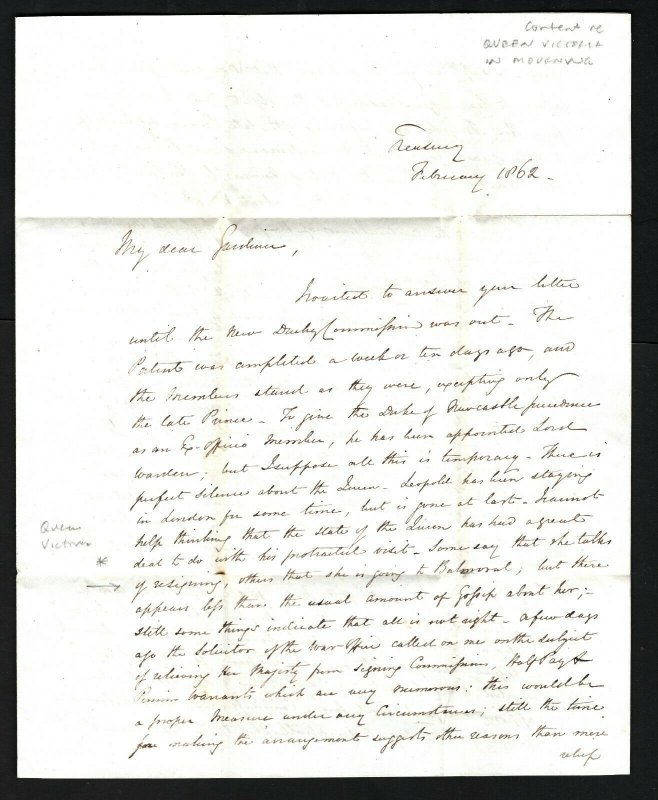 Content re
QUEEN VICTORIA
IN MOURNING
Treasury
February 1862 -
My dear Gardiner,
I waited to answer your letter
until the New Duchy Commission was out - The
Patent was completed a week or ten days ago, and
the Members stand as they were, excepting only
the late Prince - To give the Duke of Newcastle precedence
as an Ex-officio Member, he has been appointed Lord
Warden; but I suppose all this is temporary - There is
perfect silence about the Queen - Leopold has been staying
in London for some time, but is gone at last - I cannot
help thinking that the state of the Queen has had a great
deal to do with his protracted visit - Some say that she talks
of resigning, others that she is going to Balmoral; but there
appears less than the usual amount of Gossip about her; -
still some things indicate that all is not right - a few days
ago the Solicitor of the War Office called on me on the subject
of relieving Her Majesty from signing Commissions, Half Pay &
Pension Warrants which are very numerous: this would be
a proper Measure under any Circumstances; still the time
for making the arrangement suggests other reasons than mere
relief
Queen
Victoria
*
→